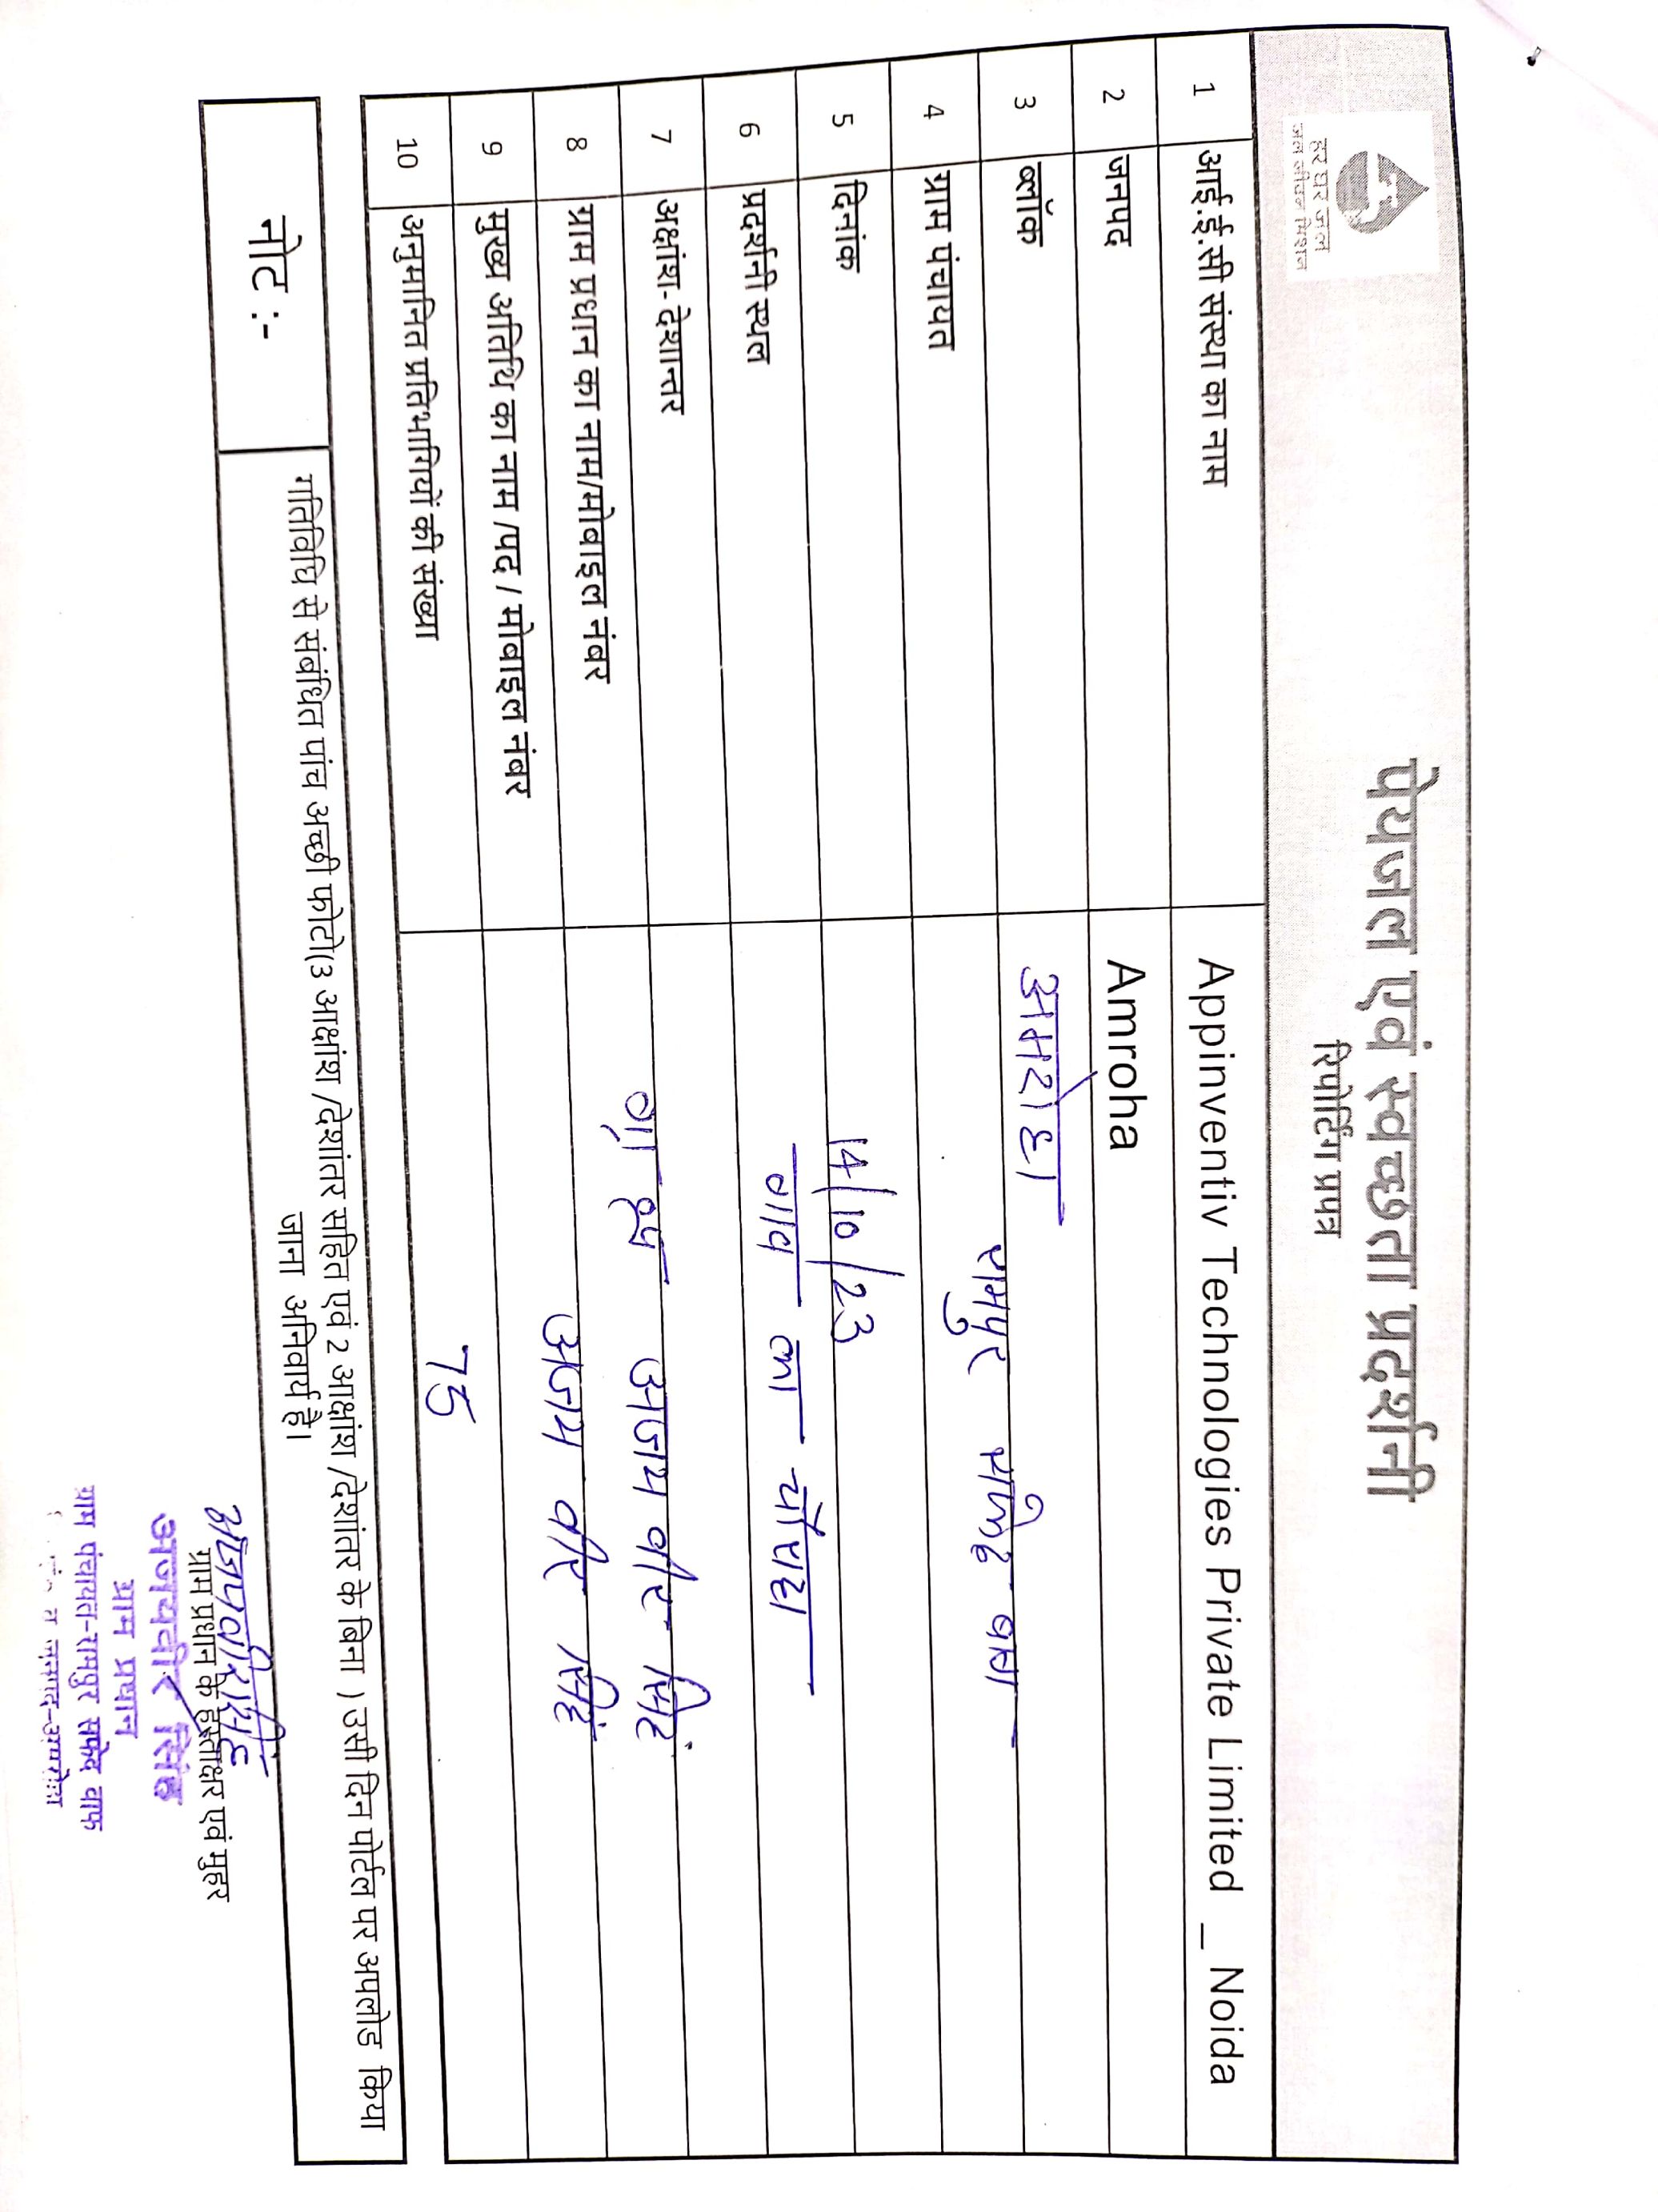 हर घर जल
जल जीवन मिशन
पेयजल एवं स्वच्छता प्रदर्शनी
रिपोर्टिंग प्रपत्र
1 आई.ई.सी संस्था का नाम Appinventiv Technologies Private Limited _ Noida
2 जनपद Amroha
3 ब्लॉक अमरोहा
4 ग्राम पंचायत रामपुर सफेद बाग
5 दिनांक 14/10/23
6 प्रदर्शनी स्थल गाव का चौराहा
7 अक्षांश-देशान्तर
8 ग्राम प्रधान का नाम/मोबाइल नंबर अजय वीर सिंह
9 मुख्य अतिथि का नाम /पद / मोबाइल नंबर अजय वीर सिंह
10 अनुमानित प्रतिभागियों की संख्या 75
नोट :- गतिविधि से संबंधित पांच अच्छी फोटो(3 आक्षांश /देशांतर सहित एवं 2 आक्षांश /देशांतर के बिना ) उसी दिन पोर्टल पर अपलोड किया
जाना अनिवार्य है।
अजयवीर सिंह
ग्राम प्रधान के हस्ताक्षर एवं मुहर
अजयवीर सिंह
ग्राम प्रधान
ग्राम पंचायत-रामपुर सफेद बाग
जनपद-अमरोहा